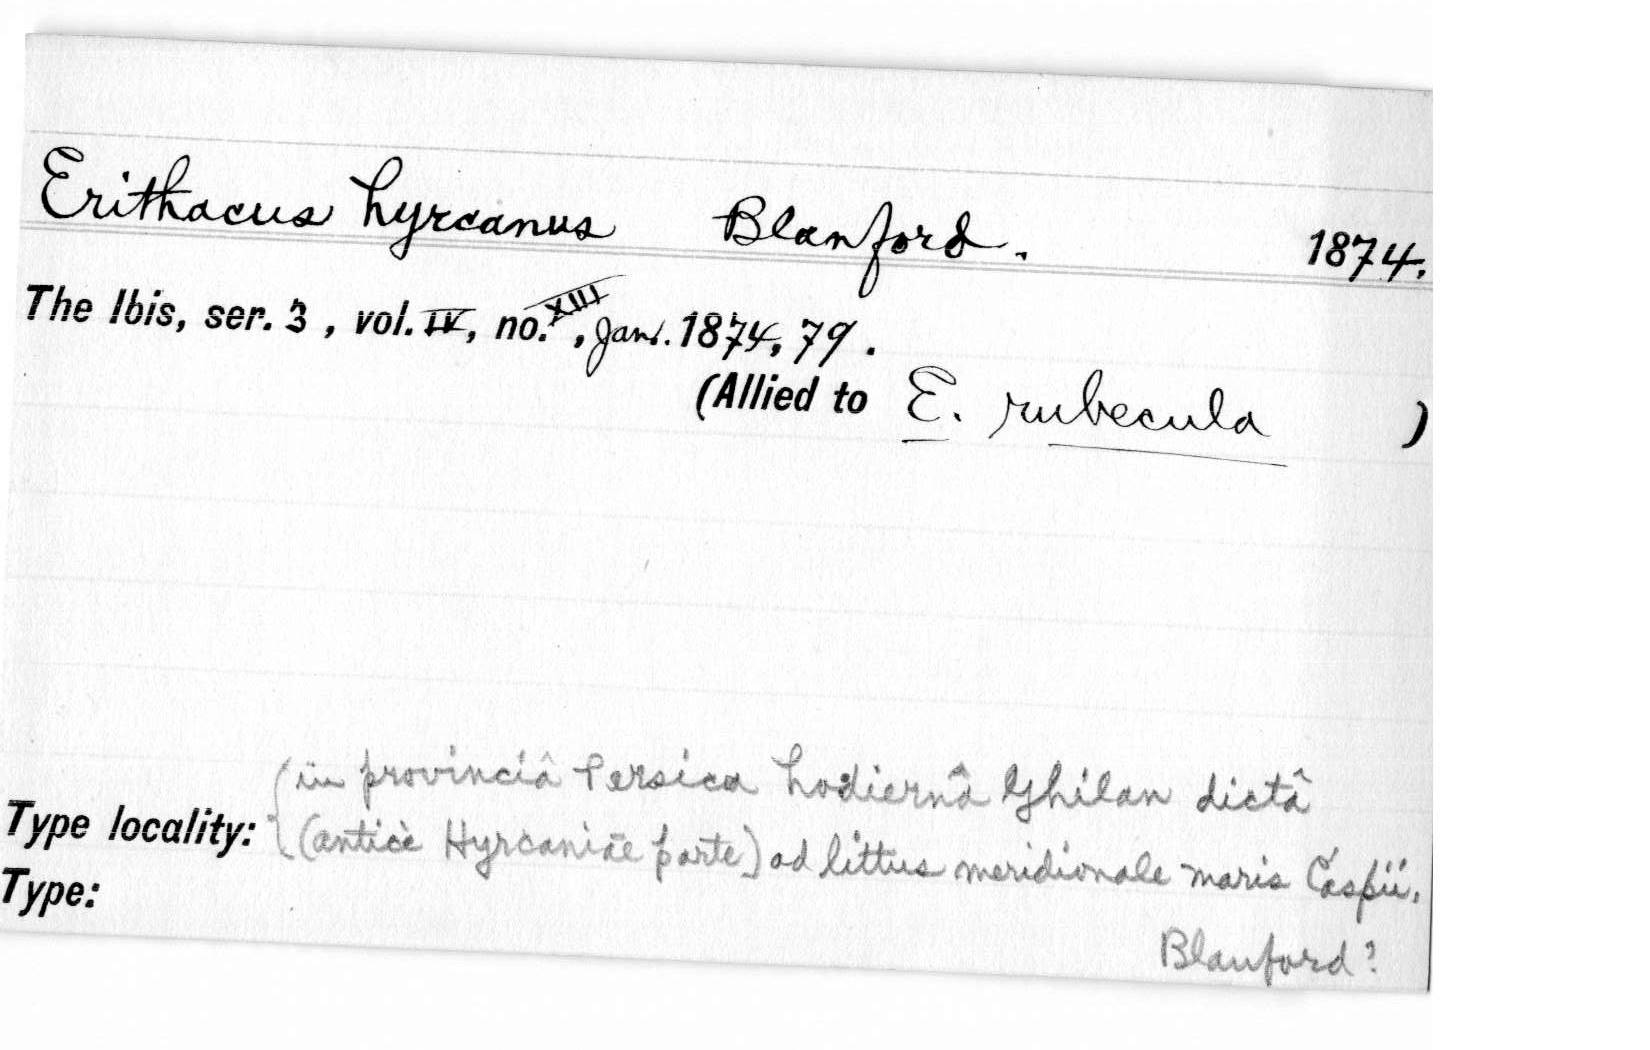 Erithacus hyrcanus Blanford. 1874.
The Ibis, ser. 3, vol. IV, no. XIII, Jan. 1874, 79.
(Allied to E. rubecula )
(in provinciâ Persica hodiernâ Ghilan dictâ
Type locality: (anticè Hyrcaniae parte) ad littus meridionale maris Caspii.
Type:
Blanford?